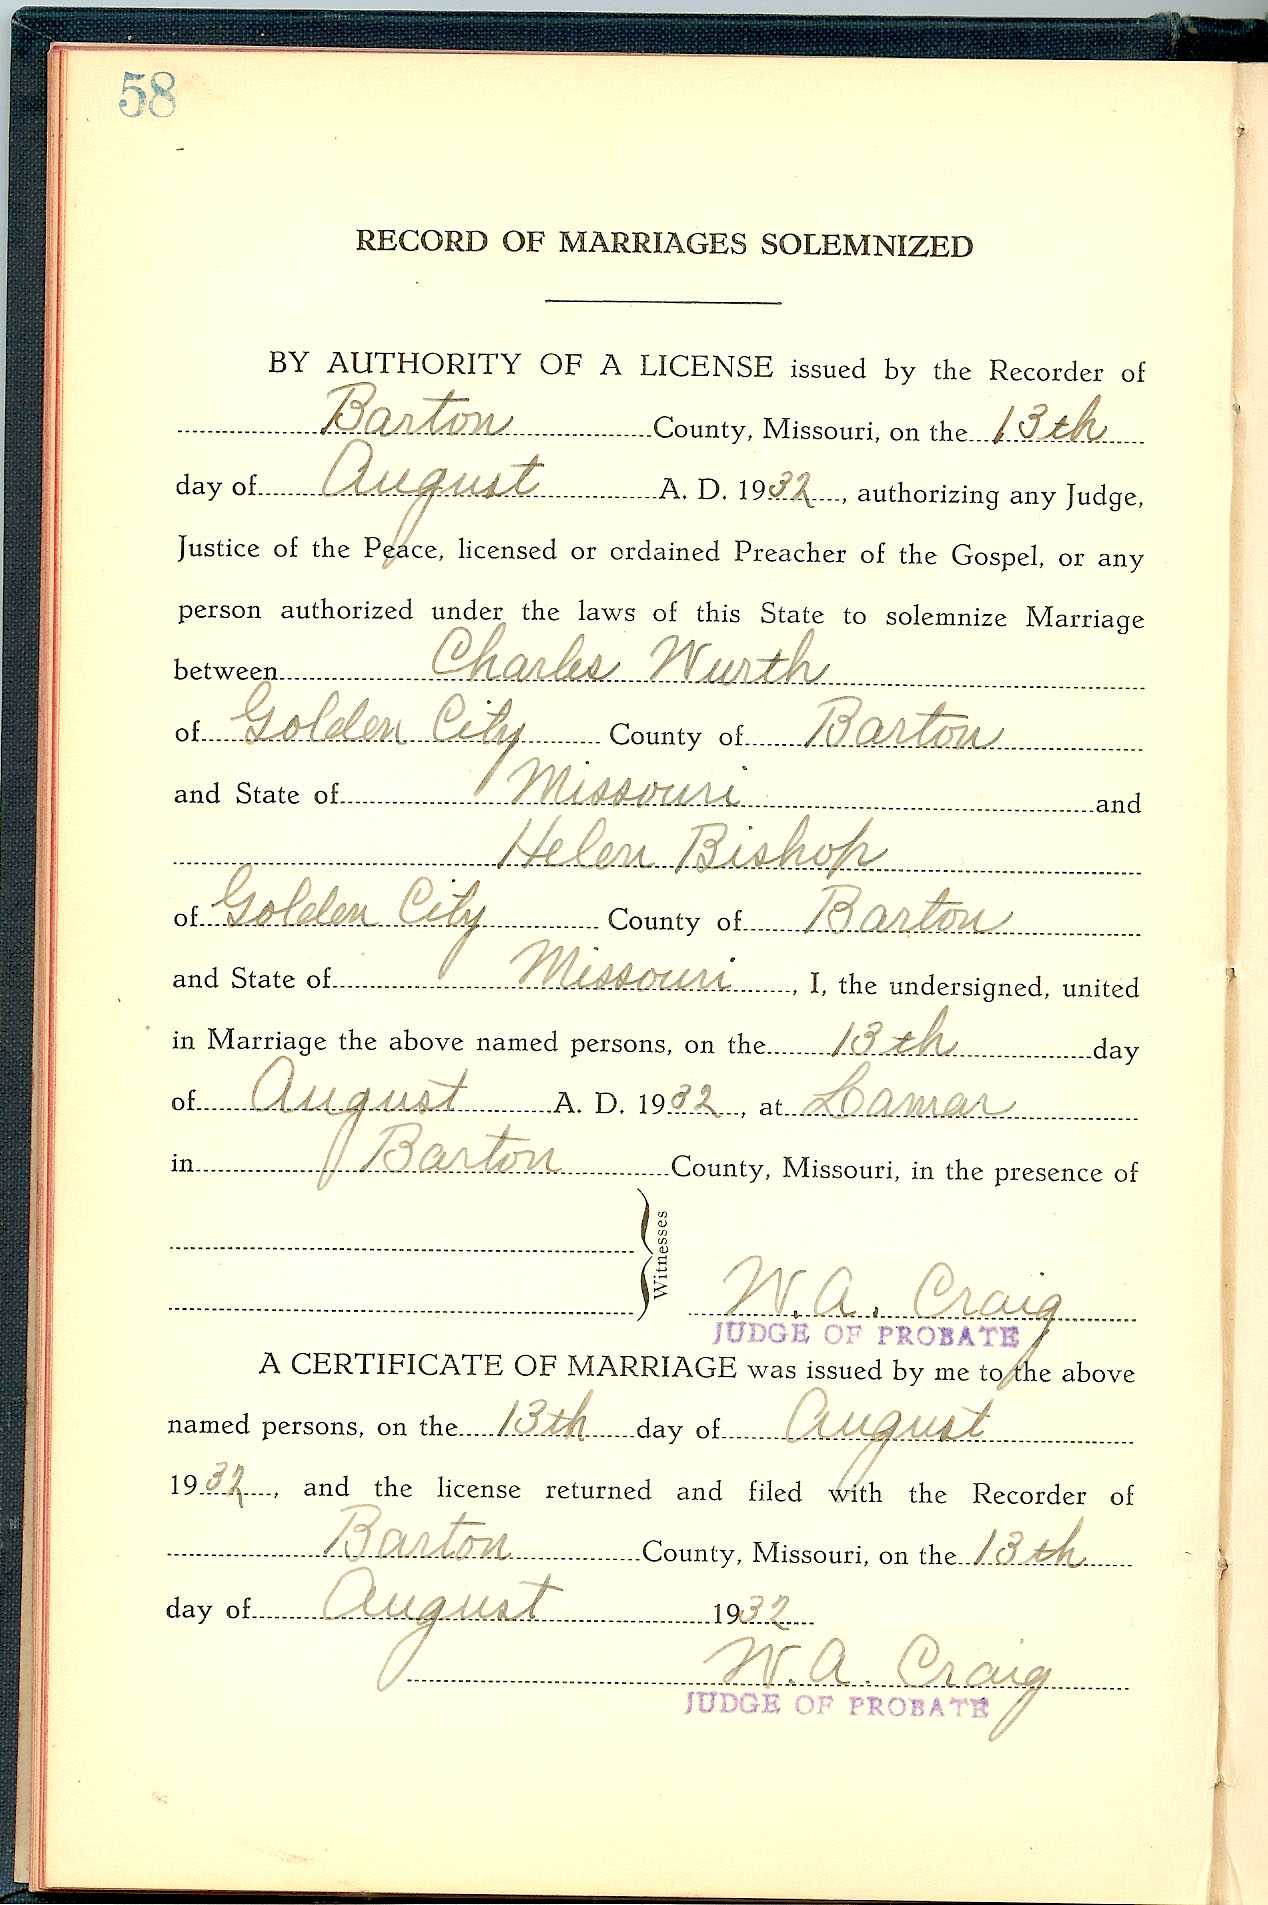 58
RECORD OF MARRIAGES SOLEMNIZED
BY AUTHORITY OF A LICENSE issued by the Recorder of
Barton County, Missouri, on the 13th
day of August A. D. 1932, authorizing any Judge,
Justice of the Peace, licensed or ordained Preacher of the Gospel, or any
person authorized under the laws of this State to solemnize Marriage
between Charles Wurth
of Golden City County of Barton
and State of Missouri and
Helen Bishop
of Golden City County of Barton
and State of Missouri, I, the undersigned, united
in Marriage the above named persons, on the 13th day
of August A. D. 1932, at Lamar
in Barton County, Missouri, in the presence of
Witnesses
W. A. Craig
JUDGE OF PROBATE
A CERTIFICATE OF MARRIAGE was issued by me to the above
named persons, on the 13th day of August
1932, and the license returned and filed with the Recorder of
Barton County, Missouri, on the 13th
day of August 1932
W. A. Craig
JUDGE OF PROBATE